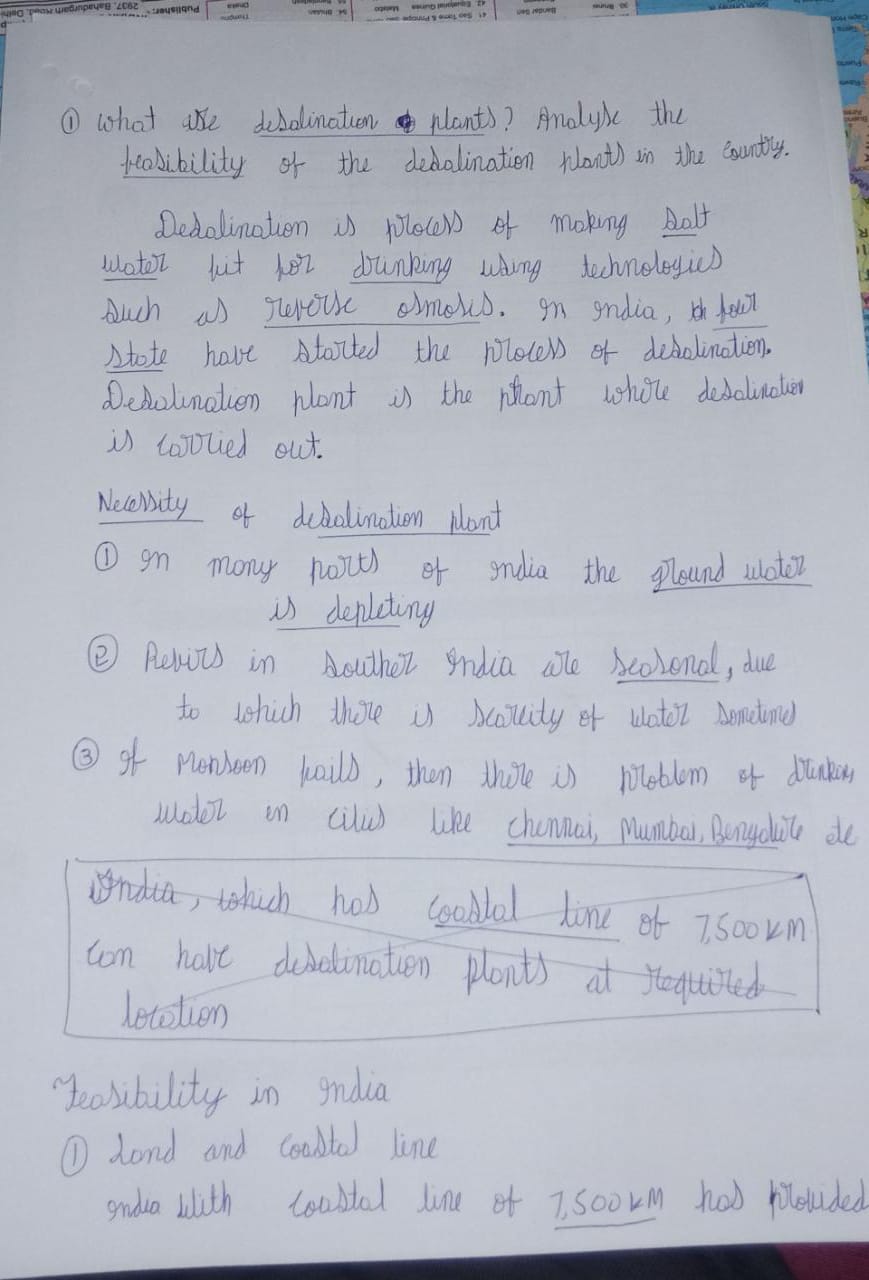 Publisher: 2937, Bahadurgarh Road, Delhi
Dhaka
Thimphu
54. Bhutan
42. Equatorial Guinea Malabo
41 Sao Tome & Principe
Bandar Seri
30. Brunei
① What are desalination plants? Analyse the
feasibility of the desalination plants in the country.
Desalination is process of making salt
water fit for drinking using technologies
such as reverse osmosis. In India, four
state have started the process of desalination.
Desalination plant is the plant where desalination
is carried out.
Necessity of desalination plant
① In many parts of India the ground water
is depleting
② Revirs in Souther India are seasonal, due
to which there is scarcity of water sometimes
③ If Monsoon fails, then there is problem of drinking
water in cities like Chennai, Mumbai, Bengalure etc
India, which has coastal line of 7,500 KM
can have desalination plants at required
location
Feasibility in India
① Land and coastal line
India With coastal line of 7,500 KM has provided